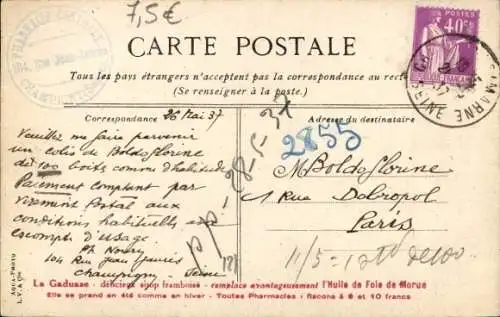 7,5€
PHARMACIE CENTRALE
Rue Jean-Jaurès
CHAMPIGNY
POSTES
40c
CARTE POSTALE
Tous les pays étrangers n'acceptent pas la correspondance au recto
(Se renseigner à la poste.)
SEINE MARNE
Correspondance
Adresse du destinataire
26 Mai 37
Veuillez me faire parvenir
un colis de Boldoflorine
de 100 boîtes comme d'habitude
Paiement comptant par
virement Postal aux
conditions habituelles
escompte d'usage.
Ph
104 Rue Jean Jaurès
Champigny - Seine
28-5-37
2855
M Boldoflorine
1 Rue Dobropol
Paris
11/5 = 12 de 100
Aqua-Photo
L.V. & Cie
La Gadusse - délicieux sirop framboisé - remplace avantageusement l'Huile de Foie de Morue
Elle se prend en été comme en hiver - Toutes Pharmacies : flacons à 6 et 10 francs